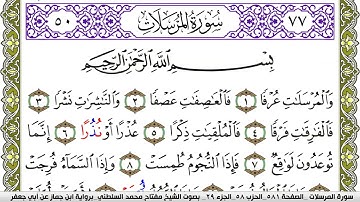 ٥٠ سُورَةُ المُرْسَلَاتِ ٧٧
بِسْمِ اللَّهِ الرَّحْمَٰنِ الرَّحِيمِ
وَالْمُرْسَلَاتِ عُرْفًا ١ فَالْعَاصِفَاتِ عَصْفًا ٢ وَالنَّاشِرَاتِ نَشْرًا ٣
فَالْفَارِقَاتِ فَرْقًا ٤ فَالْمُلْقِيَاتِ ذِكْرًا ٥ عُذْرًا أَوْ نُذُرًا ٦ إِنَّمَا
تُوعَدُونَ لَوَاقِعٌ ٧ فَإِذَا النُّجُومُ طُمِسَتْ ٨ وَإِذَا السَّمَاءُ فُرِجَتْ
سورة المرسلات الصفحة ٥٨١ الحزب ٥٨ الجزء ٢٩ بصوت الشيخ مفتاح محمد السلطني برواية ابن جماز عن أبي جعفر